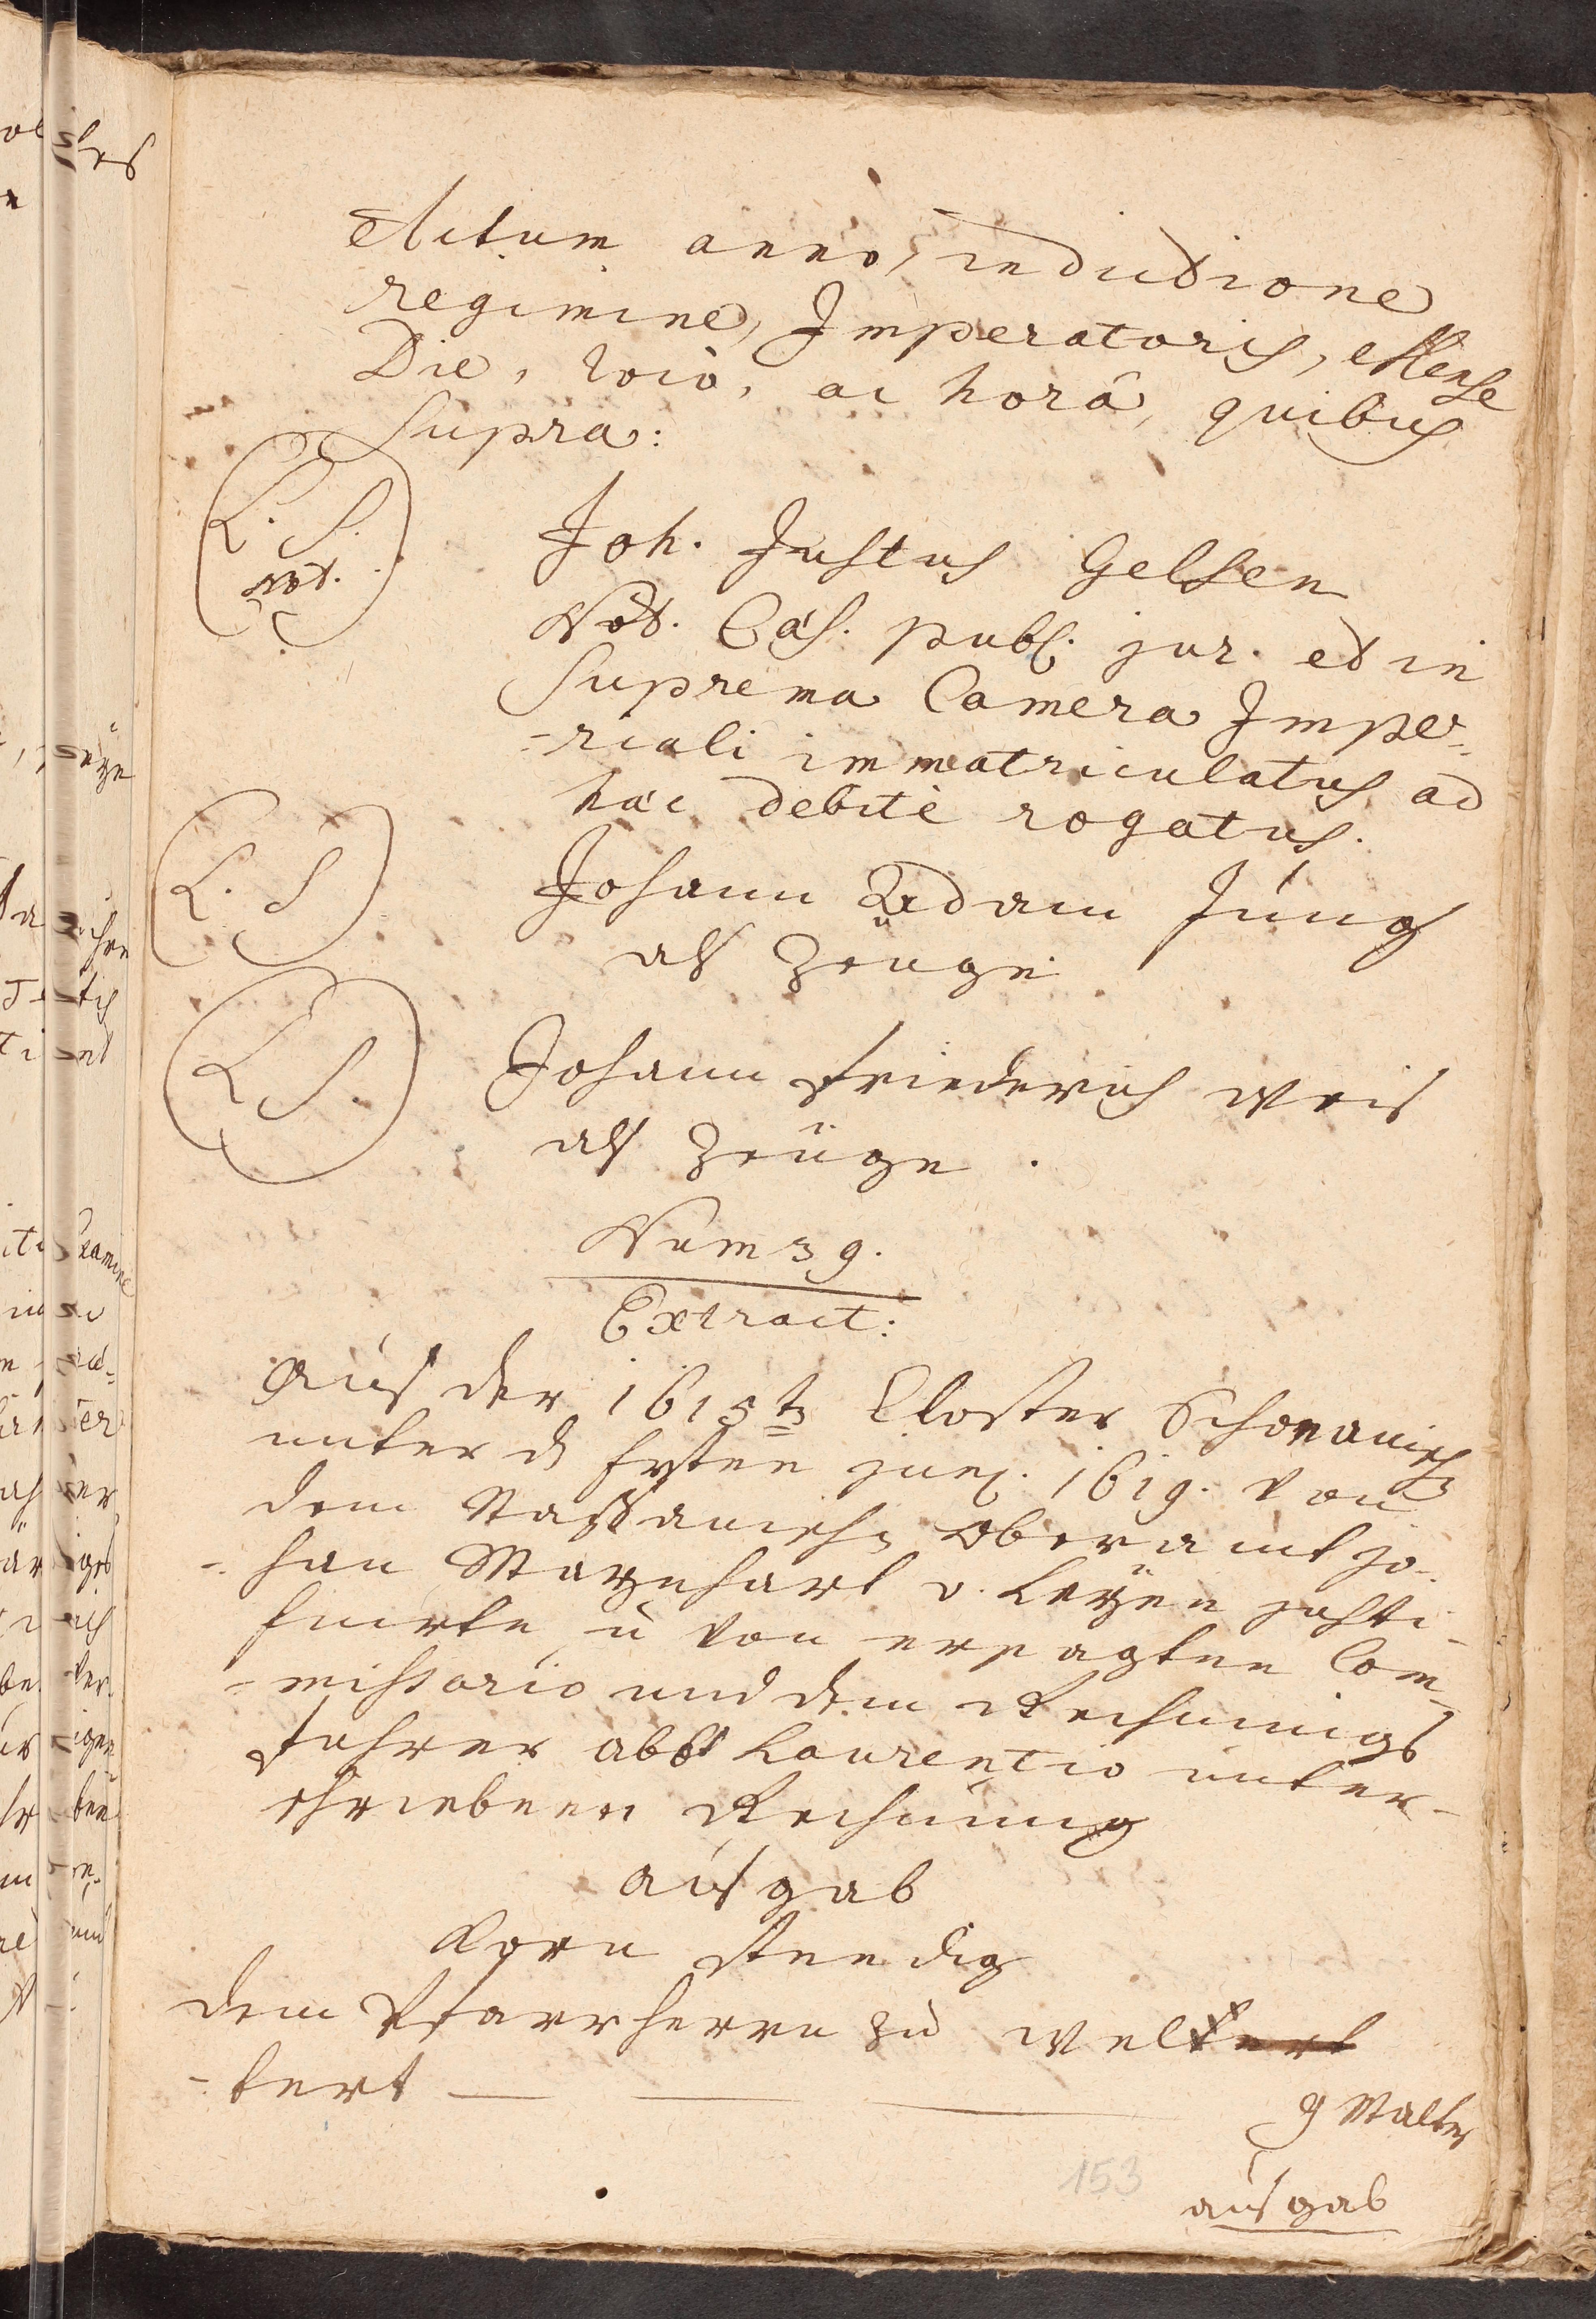 Actum anno, indictione
regimine, Imperatoris, Mense
Die, locò, ac horâ, quibus
supra:
L. S.
Not.
Joh. Justus Gelsen
Not. Cæs. publ. jur. et in
Suprema Camera Impe-
-riali immatriculatus ad
hæc debitè rogatus.
L. S
Johann Adam Jung
als Zeuge
L S.
Johann Friederich Weis
als Zeuge.
Num 39.
Extract:
Aus der 1615ten Closter Schonauisch
unter den Junij. 1619. von
dem Nassauischen Oberamt Jo-
-han Maynhart v. Leyen justi-
ficirte, ù von ersagten Com-
-missario und dem Rechnungs
führer abbt Laurentio unter-
schriebenen Rechnung
Ausgab
Korn stendig
dem Pfarrherrn zu Welt
-tert
9 Malter
153
Ausgab